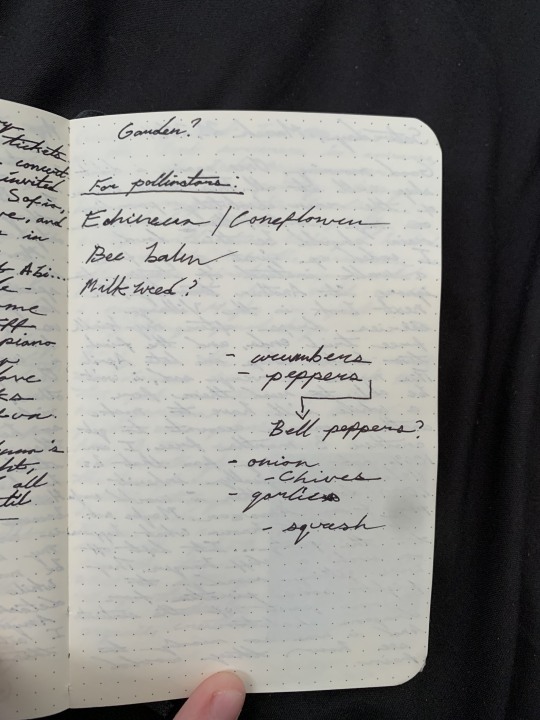 tickets
concert
invited
Sofia,
and
in
Abi...
piano
all
Garden?
For pollinators:
Echinecea / Coneflower
Bee balm
Milkweed?
- cucumbers
- peppers
Bell peppers?
- onion
- Chives
- garlic
- squash